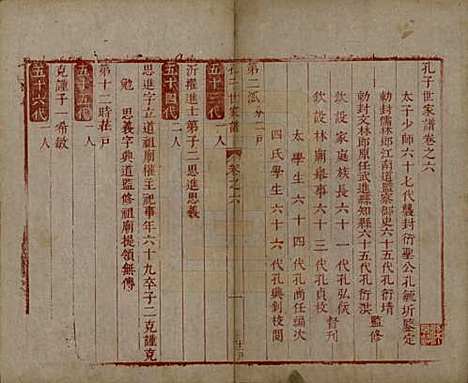 孔子世家譜卷之六
太子少師六十七代襲封衍聖公孔毓圻鑒定
勅封儒林郎江南道監察御史六十五代孔衍
勅封文林郎原任武進縣知縣六十五代孔衍淇 監修
欽設家庭族長六十一代孔弘
欽設林廟舉事六十三代孔貞校 督刊
太學生六十四代孔尚任編次
四氏學生六十六代孔興釗校閱
第二派
孔子世家譜 卷之六 一
五十三代 一人
沂㩁進主弟子二思進思義
五十四代 二人
思進字立道祖廟㩁主祀事年六十九卒子二克謹克
勉 思義字典道監修祖廟提領無傳
第十二時莊戶
五十五代 一人
克謹子一希敏
五十六代 一人